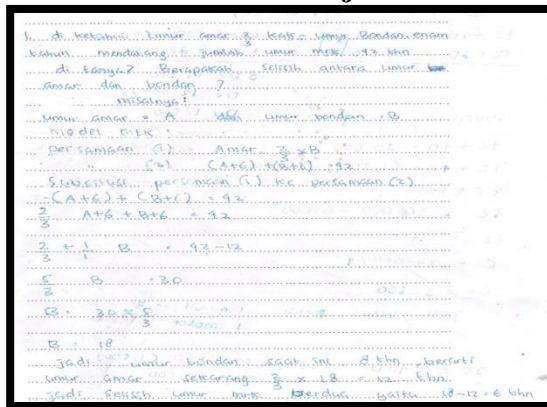 1. di ketahui: Umur amar 2/3 kali umur Bondan enam
tahun mendatang jumlah umur mrk 42 thn
di tanya? Berapakah selisih antara umur
amar dan bondan ?
misalnya :
umur amar = A dan umur bondan = B
model mtk :
persamaan (1) Amar 2/3 x B
" (2) (A+6) + (B+6) = 42
Substitusi persamaan (1) ke persamaan (2)
(A+6) + (B+6) = 42
2/3 A+6 + B+6 = 42
2/3 + 1/1 B = 42-12
5/3 B = 30
B = 30 x 5/3
B = 18
jadi umur bondan saat ini 8 thn berarti
umur amar sekarang 2/3 x 18 = 12 thn
jadi selisih umur mrk berdua yaitu 18-12 = 6 thn